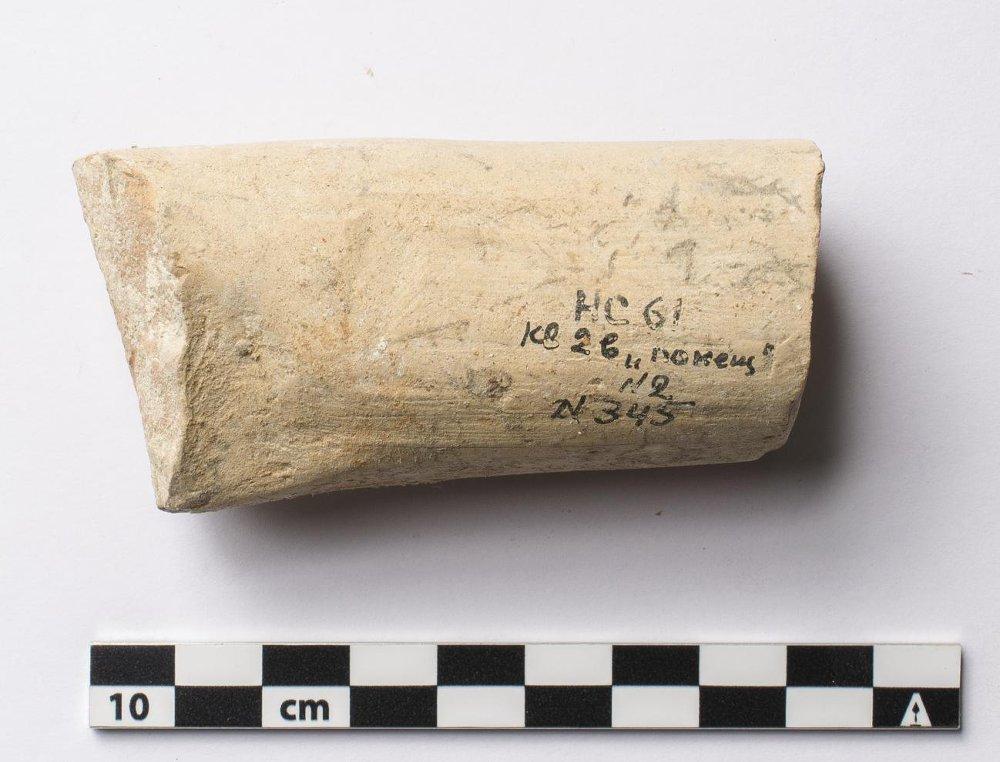 НС 61
кв 2в „помещ"
N2
N 345
10 cm